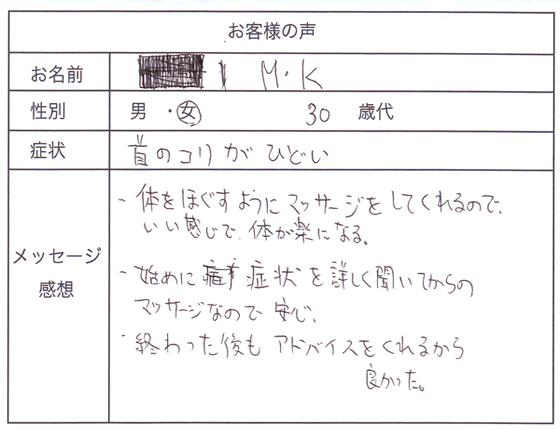 お客様の声
お名前 M・K
性別 男 ・ 女 30 歳代
症状 首のコリがひどい
メッセージ
感想
・体をほぐすようにマッサージをしてくれるので、
いい感じで、体が楽になる。
・始めに症状を詳しく聞いてからの
マッサージなので安心。
・終わった後もアドバイスをくれるから
良かった。